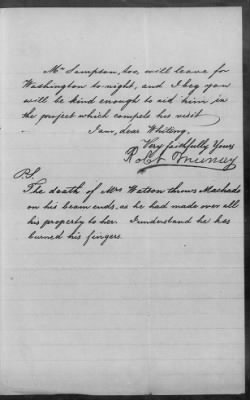 Mr Sampson, too, will leave for
Washington to-night, and I beg you
will be kind enough to aid him in
the project which compels his visit
I am, dear Whiting,
Very faithfully Yours
Robt Murray
P.S.
The death of Mrs Watson throws Machado
on his beam ends, as he had made over all
his property to her. I understand he has
burned his fingers.